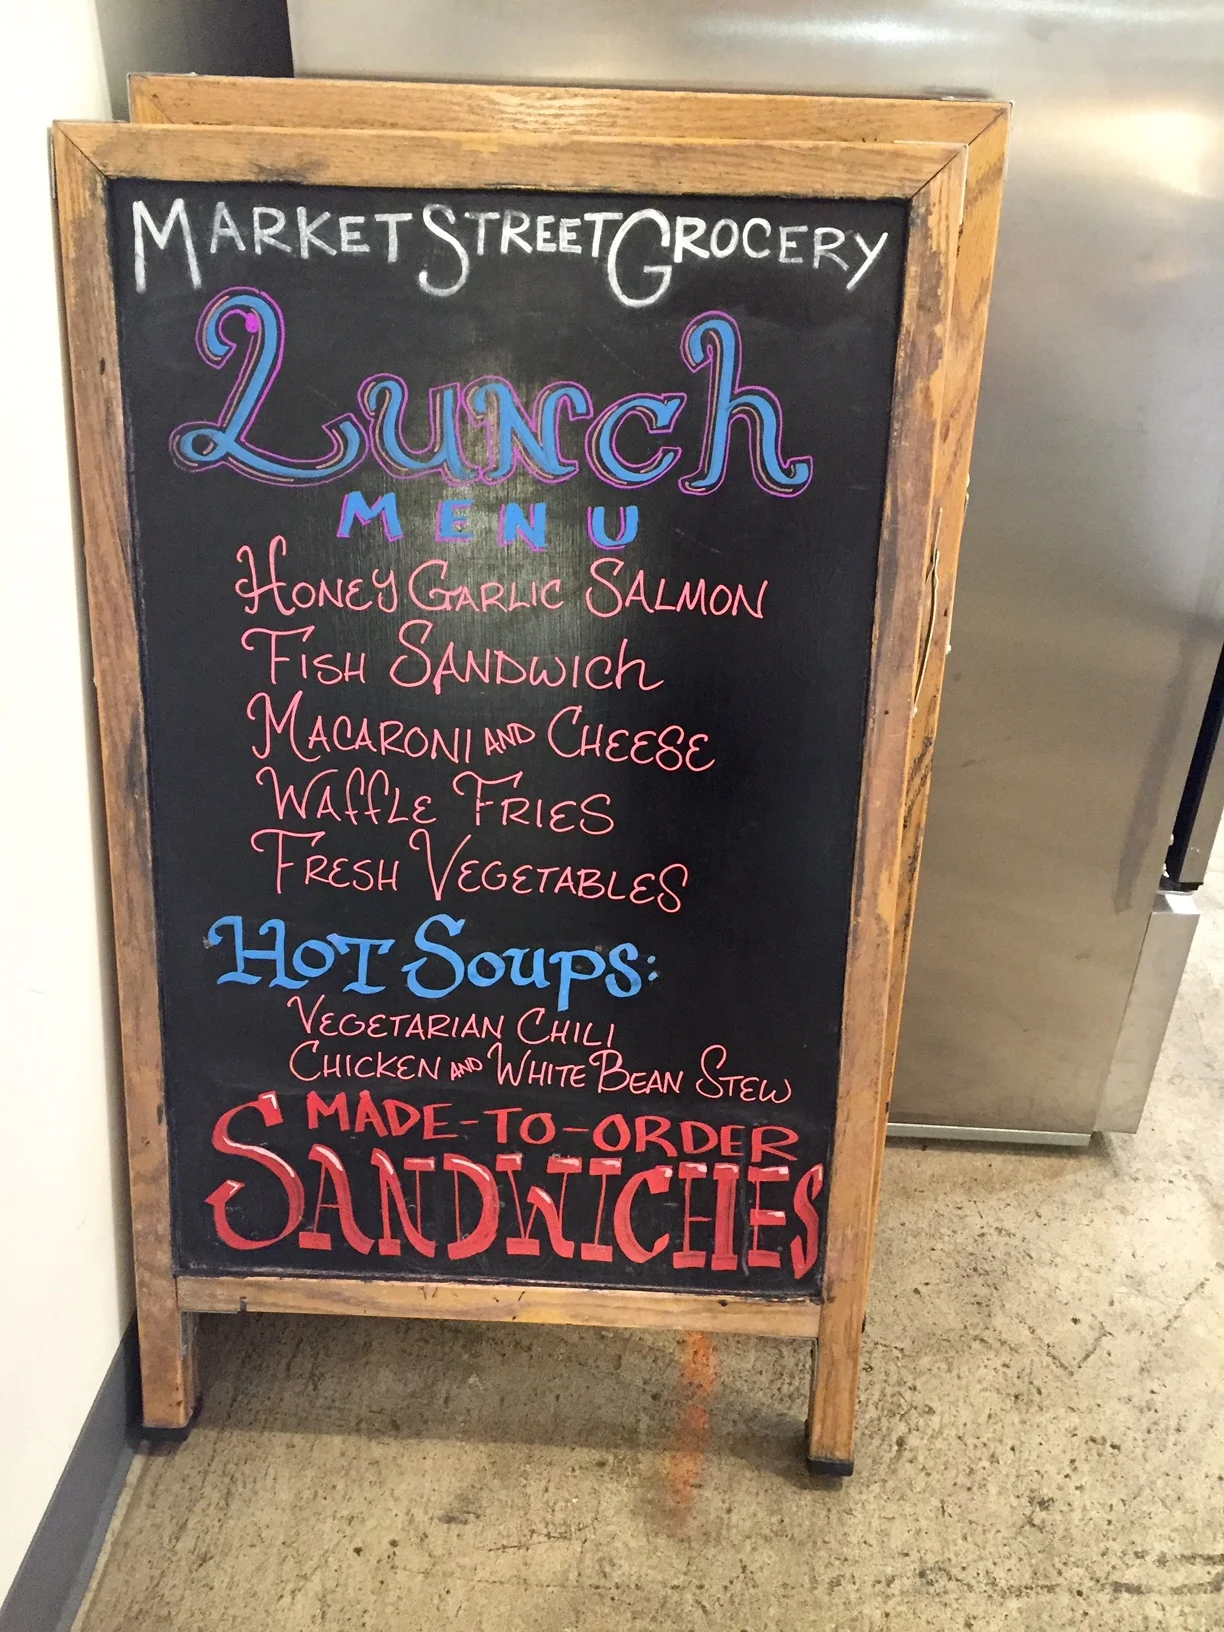 MARKET STREET GROCERY
Lunch
MENU
HONEY GARLIC SALMON
FISH SANDWICH
MACARONI AND CHEESE
WAFFLE FRIES
FRESH VEGETABLES
HOT SOUPS:
VEGETARIAN CHILI
CHICKEN AND WHITE BEAN STEW
MADE-TO-ORDER
SANDWICHES